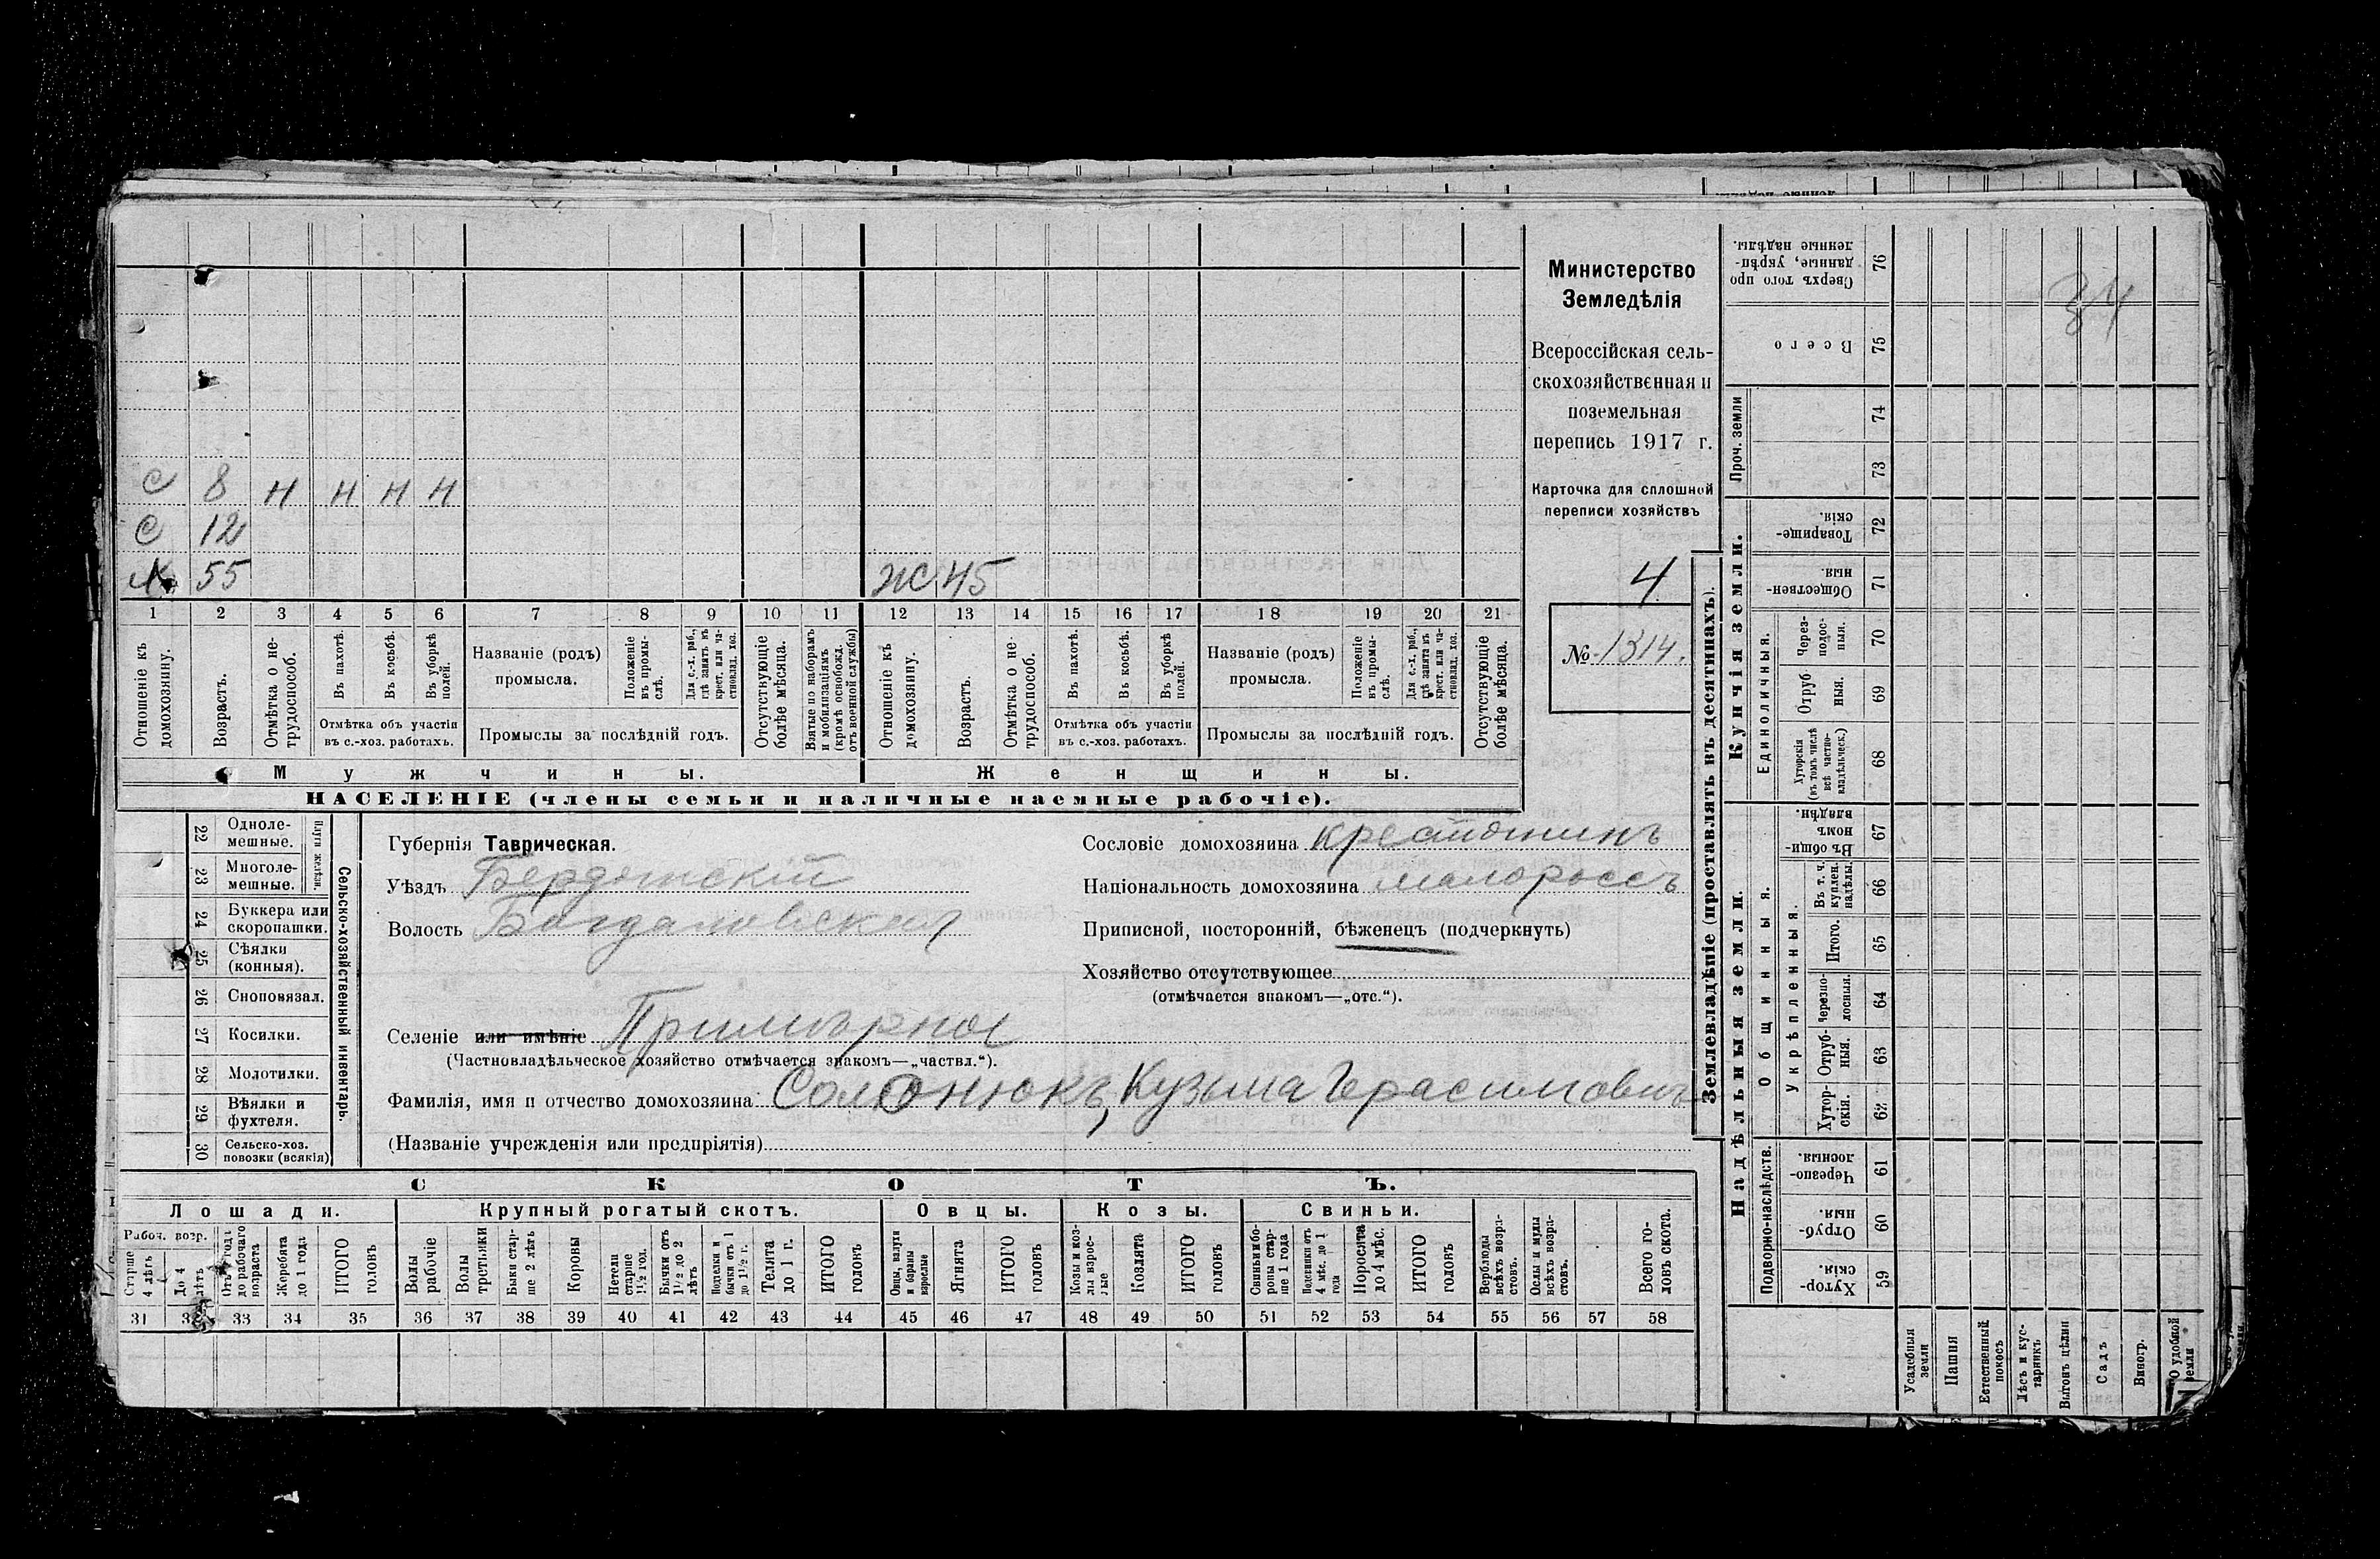 с 8 н н н н
с 12
х 55 ж 45
1 2 3 4 5 6 7 8 9 10 11 12 13 14 15 16 17 18 19 20 21
Отношеніе къ домохозяину.
Возрастъ.
Отмѣтка о не-
трудоспособ.
Въ пахотѣ.
Въ косьбѣ.
Въ уборкѣ
полей.
Отмѣтка объ участіи
въ с.-хоз. работахъ.
Названіе (родъ)
промысла.
Положеніе
въ промы-
слѣ.
Для с.-х. раб.,
гдѣ занятъ въ
крест. или ча-
стновлад. хоз.
Промыслы за послѣдній годъ.
Отсутствующіе
болѣе мѣсяца.
Взятые по наборамъ
и мобилизаціямъ
(кромѣ освобожд.
отъ военной службы)
Отношеніе къ
домохозяину.
Возрастъ.
Отмѣтка о не-
трудоспособ.
Въ пахотѣ.
Въ косьбѣ.
Въ уборкѣ
полей.
Отмѣтка объ участіи
въ с.-хоз. работахъ.
Названіе (родъ)
промысла.
Положеніе
въ промы-
слѣ.
Для с.-х. раб.,
гдѣ занята въ
крест. или ча-
стновлад. хоз.
Промыслы за послѣдній годъ.
Отсутствующіе
болѣе мѣсяца.
Мужчины.
Женщины.
НАСЕЛЕНІЕ (члены семьи и наличные наемные рабочіе).
Министерство
Земледѣлія
Всероссійская сель-
скохозяйственная и
поземельная
перепись 1917 г.
Карточка для сплошной
переписи хозяйствъ
4
№ 1314.
22 Одноле-
мешные.
23 Многоле-
мешные.
Плуги желѣзн.
24 Буккера или
скоропашки.
25 Сѣялки
(конныя).
26 Сноповязал.
27 Косилки.
28 Молотилки.
29 Вѣялки и
фухтеля.
30 Сельско-хоз.
повозки (всякія)
Сельско-хозяйственный инвентарь.
Губернія Таврическая.
Уѣздъ Бердянскій
Волость Богдановская
Селеніе или имѣніе Примѣрное
(Частновладѣльческое хозяйство отмѣчается знакомъ—„частвл.“).
Фамилія, имя и отчество домохозяина Солонюкъ, Кузьма Герасимовичъ
(Названіе учрежденія или предпріятія)
Сословіе домохозяина крестьянинъ
Національность домохозяина малороссъ
Приписной, посторонній, бѣженецъ (подчеркнуть)
Хозяйство отсутствующее
(отмѣчается знакомъ—„отс.“).
СКОТЪ.
Лошади.
Крупный рогатый скотъ.
Овцы.
Козы.
Свиньи.
Рабоч. возр.
Старше
4 лѣтъ
До 4
лѣтъ
Отъ 1 года
до рабочаго
возраста
Жеребята
до 1 года
ИТОГО
головъ
Волы
рабочіе
Волы
третьяки
Быки стар-
ше 2 лѣтъ
Коровы
Нетели
старше
1½ год.
Бычки отъ
1½ до 2
лѣтъ
Подтелки и
бычки отъ 1
до 1½ г.
Телята
до 1 г.
ИТОГО
головъ
Овцы, валухи
и бараны
взрослые
Ягнята
ИТОГО
головъ
Козы и коз-
лы взрос-
лые
Козлята
ИТОГО
головъ
Свиньи и бо-
ровы стар-
ше 1 года
Подсвинки отъ
4 мѣс. до 1
года
Поросята
до 4 мѣс.
ИТОГО
головъ
Верблюды
всѣхъ возра-
стовъ.
Ослы и мулы
всѣхъ возра-
стовъ.
Всего го-
ловъ скота.
31 32 33 34 35 36 37 38 39 40 41 42 43 44 45 46 47 48 49 50 51 52 53 54 55 56 57 58
Землевладѣніе (проставлять въ десятинахъ).
Купчія земли.
Надѣльныя земли.
Сверхъ того про
данные, укрѣп-
ленные надѣлы.
76
Всего
75
Проч. земли
74
73
Товарище-
скія.
72
Обществен-
ныя.
71
Единоличныя.
Через-
полос-
ныя.
70
Отруб
ныя.
69
Хуторскія
(въ томъ числѣ
всѣ частно-
владѣльческ.)
68
Общинныя.
Въ общи-
номъ
владѣн.
67
Укрѣпленныя.
Въ т. ч.
куплен.
надѣлы
66
Итого.
65
Черезпо-
лосныя.
64
Отруб-
ныя.
63
Хутор-
скія.
62
Подворно-наслѣдств.
Черезпо-
лосныя.
61
Отруб-
ныя.
60
Хутор-
скія.
59
Усадебныя
земли
Пашня
Естественный
покосъ
Лѣсъ и кус-
тарникъ
Выгонъ цѣлин
Садъ
Виногр.
О удобной
земли
34